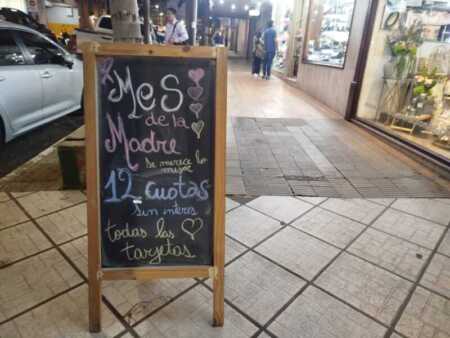 Mes
de la
Madre
se merece lo
mejor
12 cuotas
sin interes
todas las
tarjetas